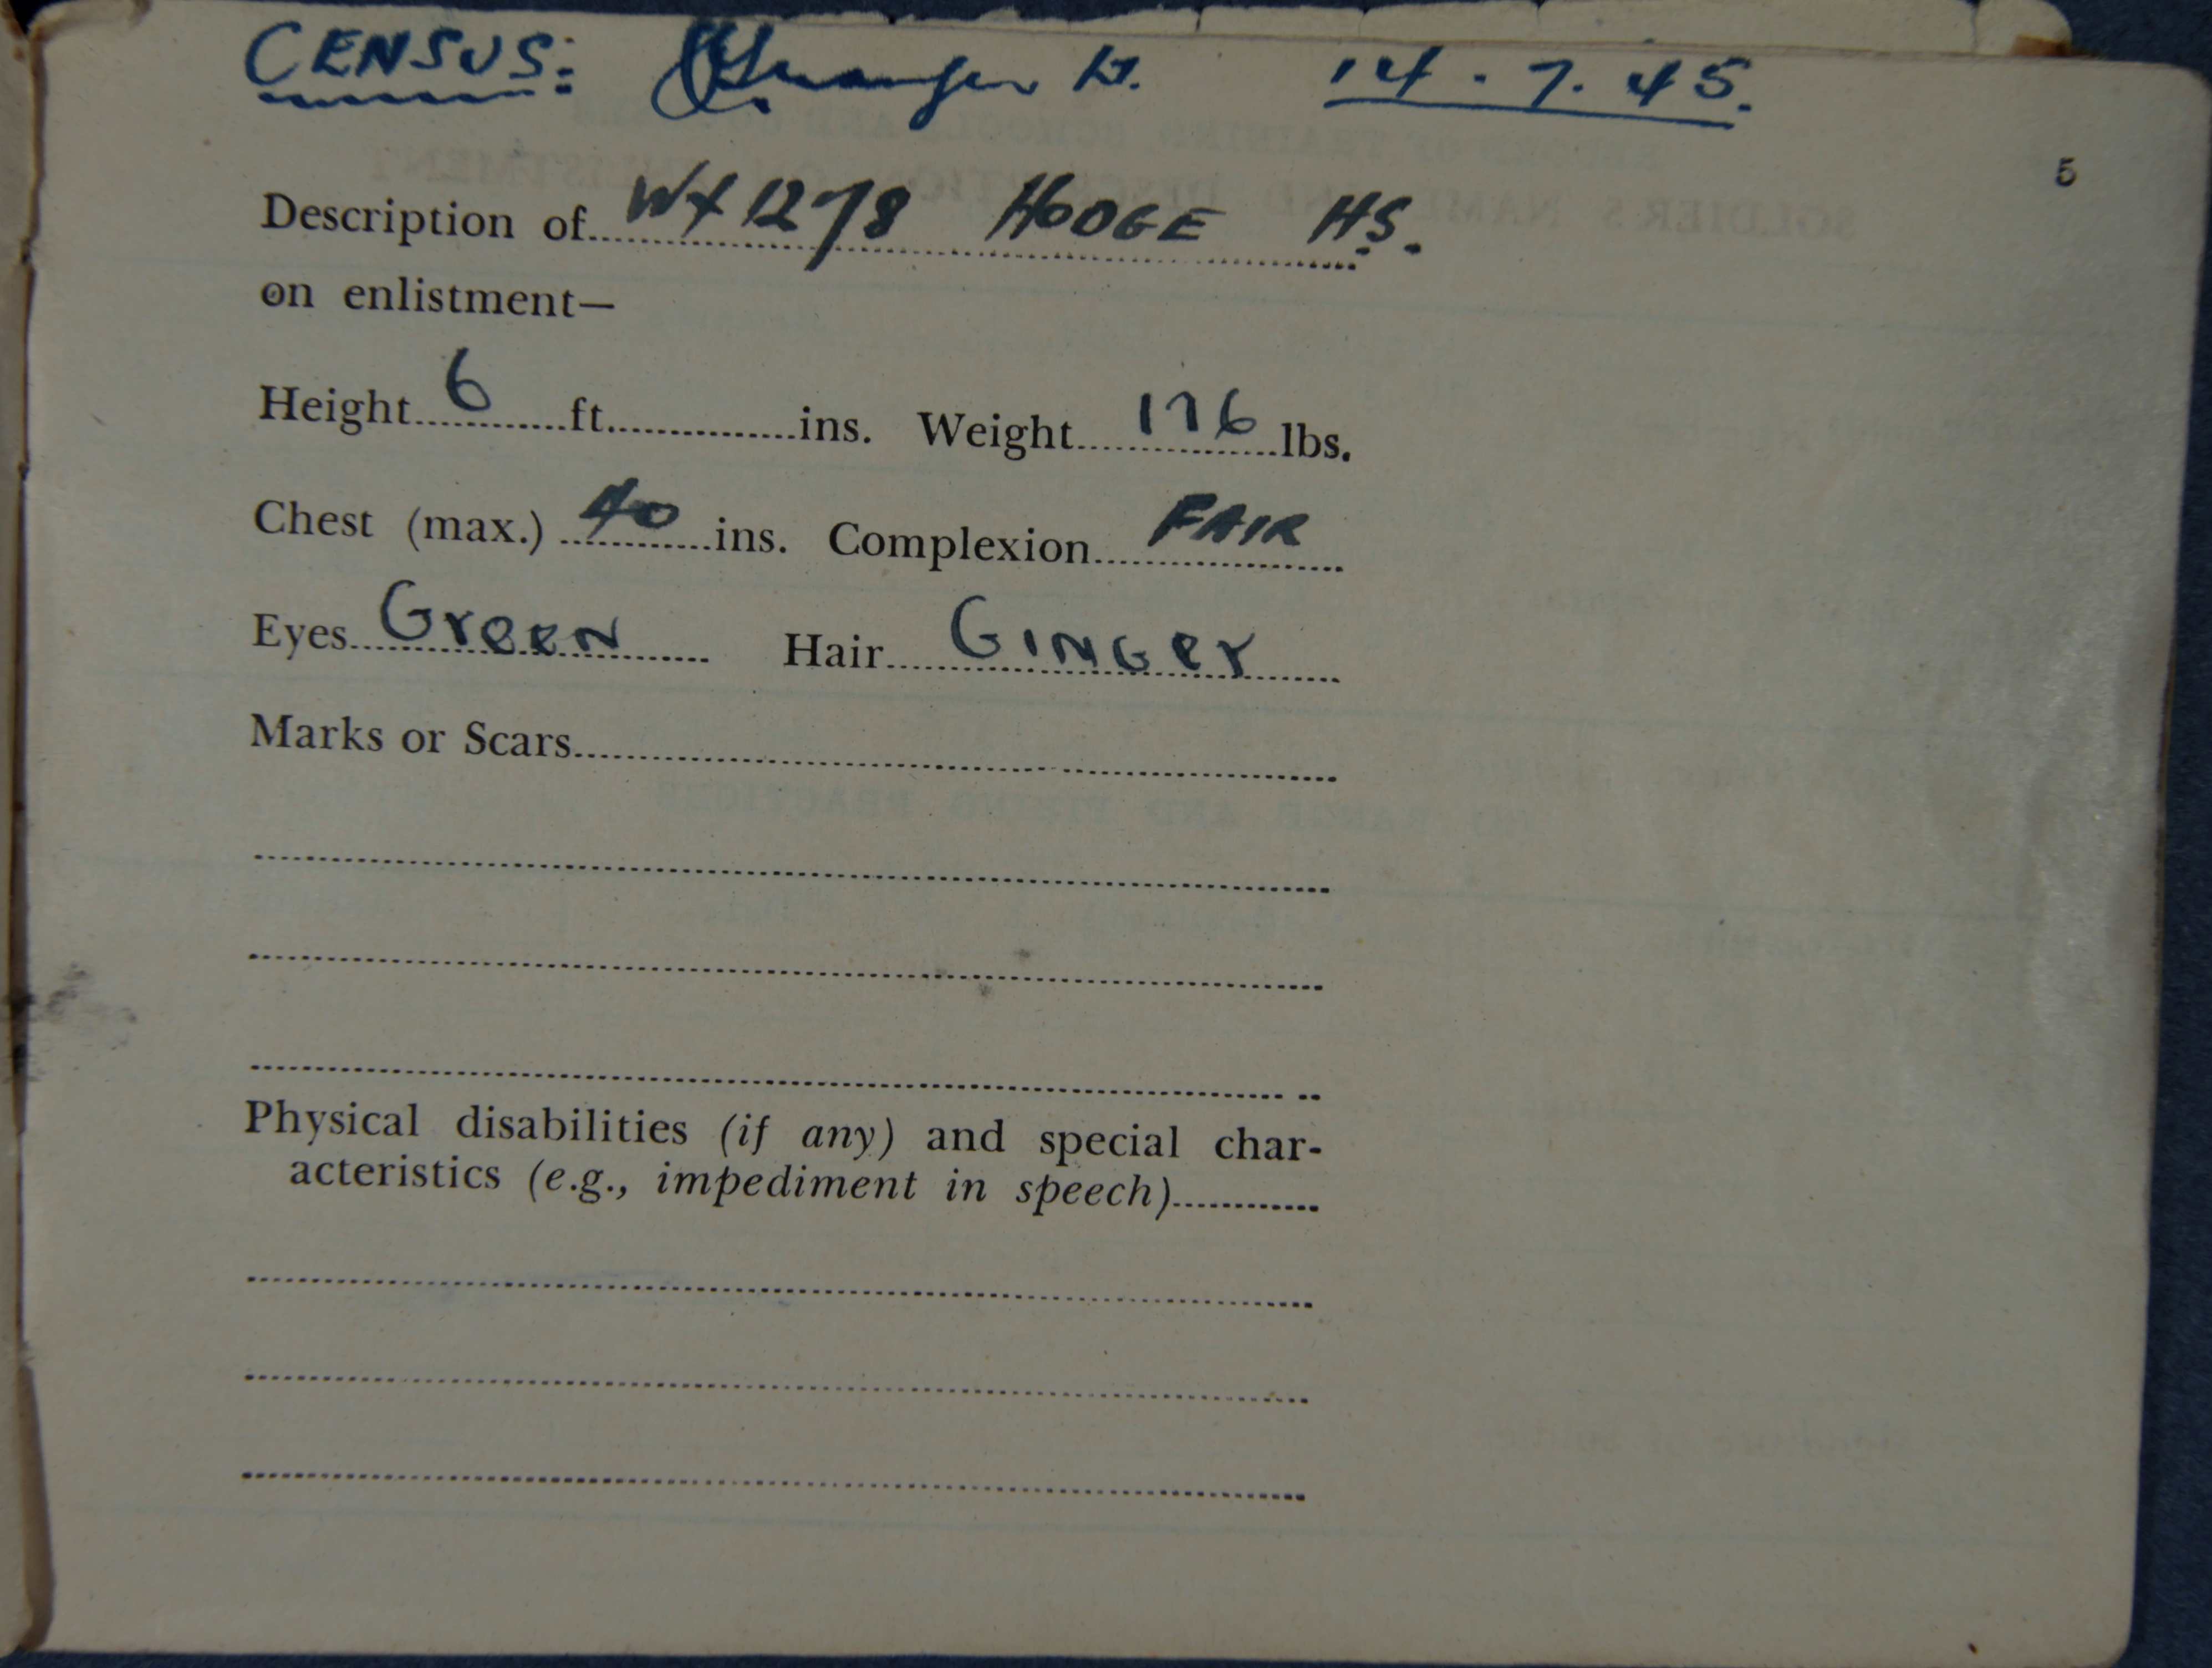 CENSUS: Lt. 14.7.45.
5
Description of WX 1278 HODGE HS.
on enlistment—
Height 6 ft. ins. Weight 176 lbs.
Chest (max.) 40 ins. Complexion FAIR
Eyes GREEN Hair GINGER
Marks or Scars
Physical disabilities (if any) and special char-
acteristics (e.g., impediment in speech)